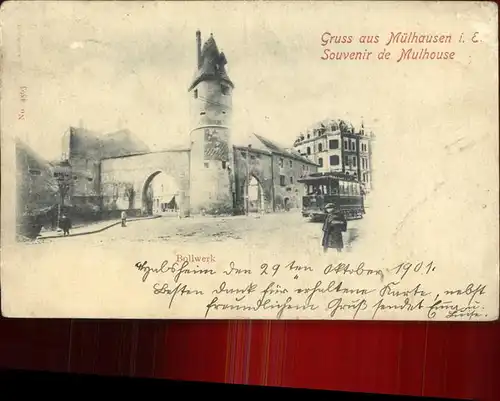 Gruss aus Mülhausen i. E.
Souvenir de Mulhouse
No. 4563
Bollwerk
den 29ten Oktober 1901.
Besten Dank für erhaltene Karte, nebst
freundlichem Gruß sendet